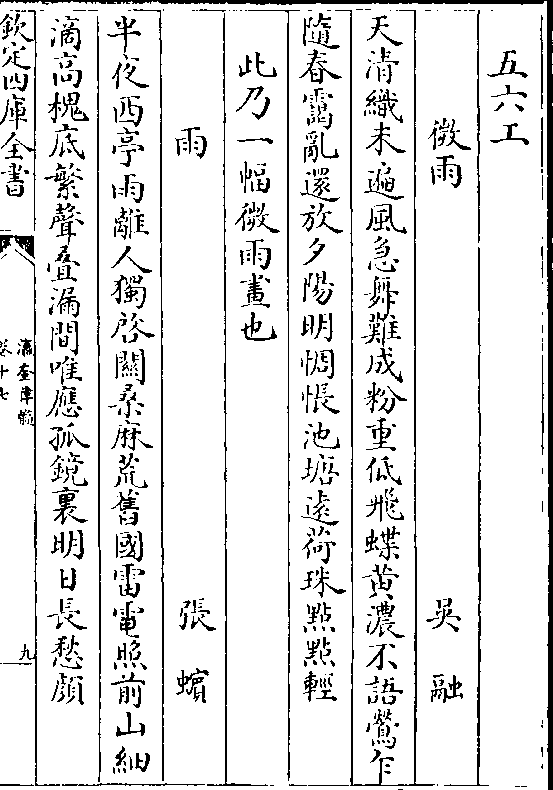 五六工
微雨　吳融
天清織未遍風急舞難成粉重低飛蝶黄濃不語鶯乍
隨春靄亂還放夕陽明惆悵池塘遠荷珠㸃㸃輕
此乃一幅微雨畫也
雨　張蠙
半夜西亭雨離人獨啓關桑麻荒舊國雷電照前山細
滴高槐底繁聲疊漏間唯應孤鏡裏明日長愁顔
欽定四庫全書
瀛奎律髓
卷十七
九